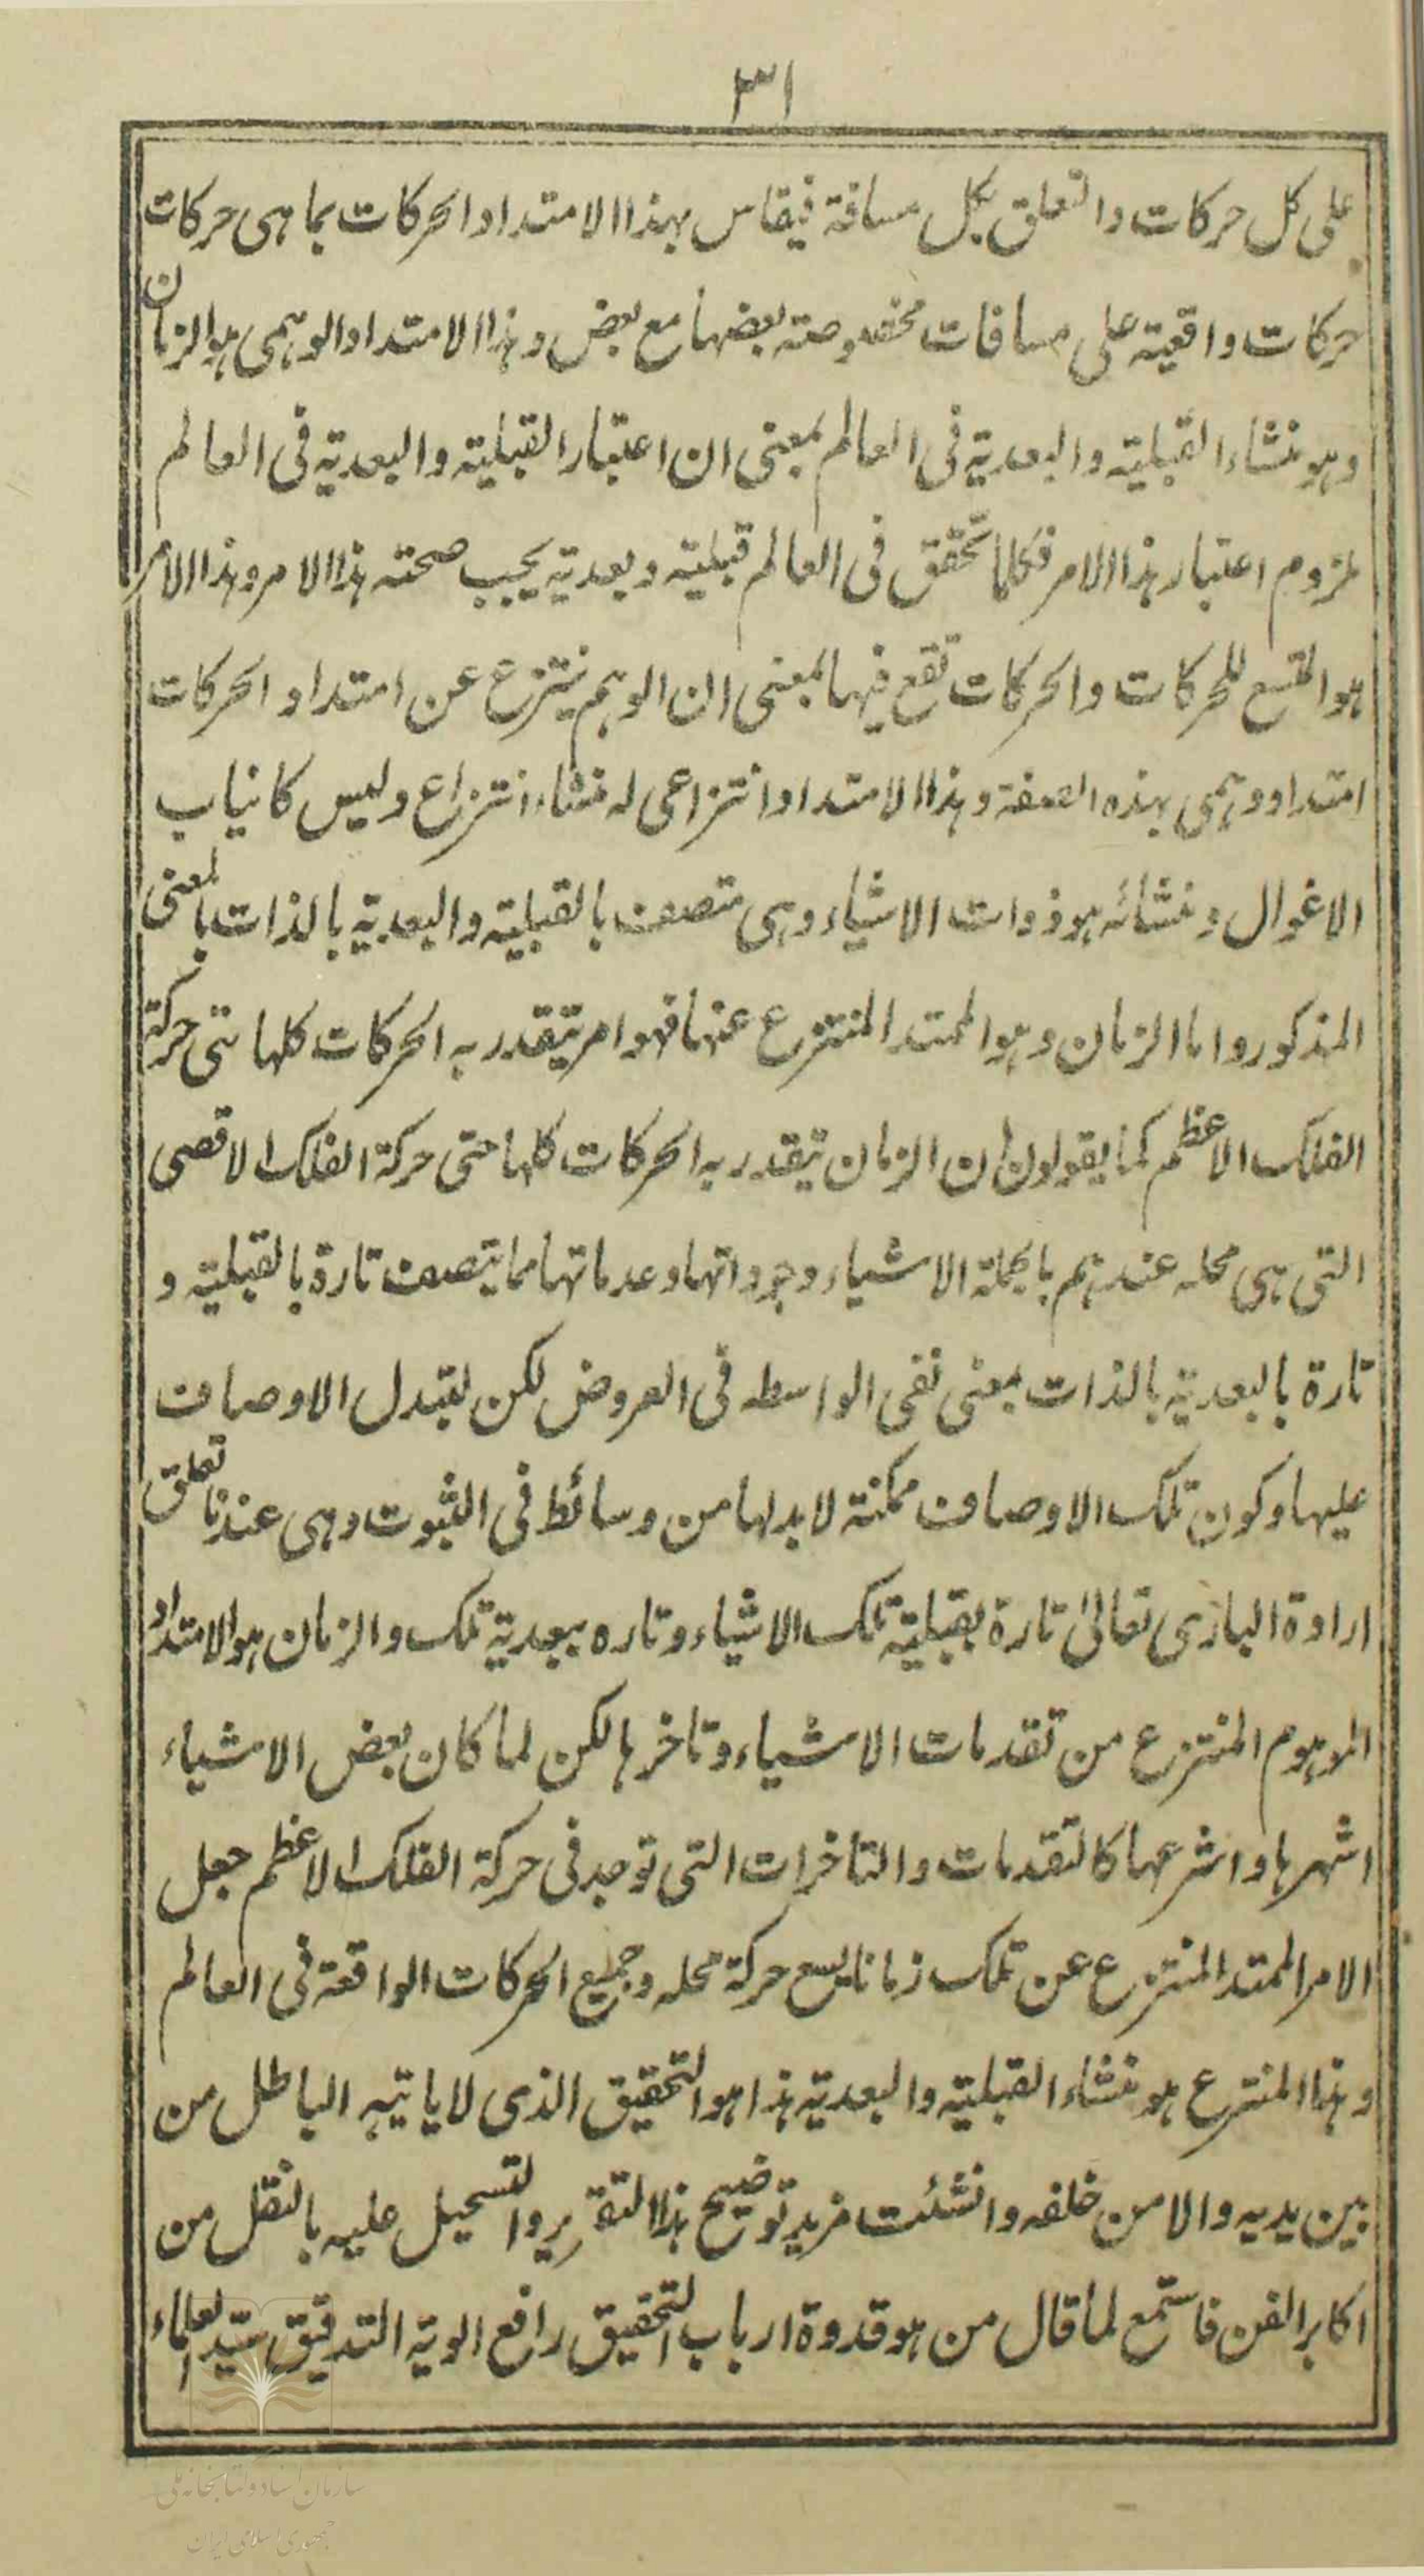 ٣١
على كل حركات والتعلق بكل مسافة فيقاس بهذا الامتداد الحركات بما هى حركات
حركات واقعية على مسافات مخصوصته بعضها مع بعض وهذا الامتداد الوهمى هو الزمان
وهو منشاء القبلية والبعدية فى العالم بمعنى ان اعتبار القبلية والبعدية فى العالم
لزوم اعتبار هذا الامر فكلما تحقق فى العالم قبلية وبعدية يجب صحته هذا الامر وهذا الامر
هو المتسع للحركات والحركات تقع فيها بمعنى ان الوهم ينتزع عن امتداد الحركات
امتداد وهمى بهذه الصفة وهذا الامتداد انتزاعى له منشاء انتزاع وليس كانياب
الاغوال ومنشائه هو ذوات الاشياء وهى متصف بالقبلية والبعدية بالذات بالمعنى
المذكور واما الزمان وهو الممتد المنتزع عنها فهو امر يتقدر به الحركات كلها حتى حركة
الفلك الاعظم كما يقولون ان الزمان يتقدر به الحركات كلها حتى حركة الفلك الاقصى
التى هى محله عندهم بالجملة الاشياء وجوداتها وعدماتها مما يتصف تارة بالقبلية و
تارة بالبعدية بالذات بمعنى نفى الواسطه فى العروض لكن لتبدل الاوصاف
عليها وكون تلك الاوصاف ممكنة لا بد لها من وسائط فى الثبوت وهى عندنا تعلق
ارادة البارى تعالىٰ تارة بقبلية تلك الاشياء وتاره ببعدية تلك والزمان هو الامتداد
الموهوم المنتزع من تقدمات الاشياء وتاخرها لكن لما كان بعض الاشياء
اشهرها واشرعها كالتقدمات والتاخرات التى توجد فى حركة الفلك الاعظم جعل
الامر الممتد المنتزع عن تلك زمانا يسع حركة محله وجميع الحركات الواقعة فى العالم
وهذا المنتزع هو منشاء القبلية والبعدية هذا هو التحقيق الذى لا ياتيه الباطل من
بين يديه والا من خلفه وانشئت مزيد توضيح هذا التقرير والتسجيل عليه بالنقل من
اكابر الفن فاستمع لما قال من هو قدوة ارباب التحقيق رافع الوية التدقيق سيد العلماء
سازمان اسناد و کتابخانه ملی
جمهوری اسلامی ایران